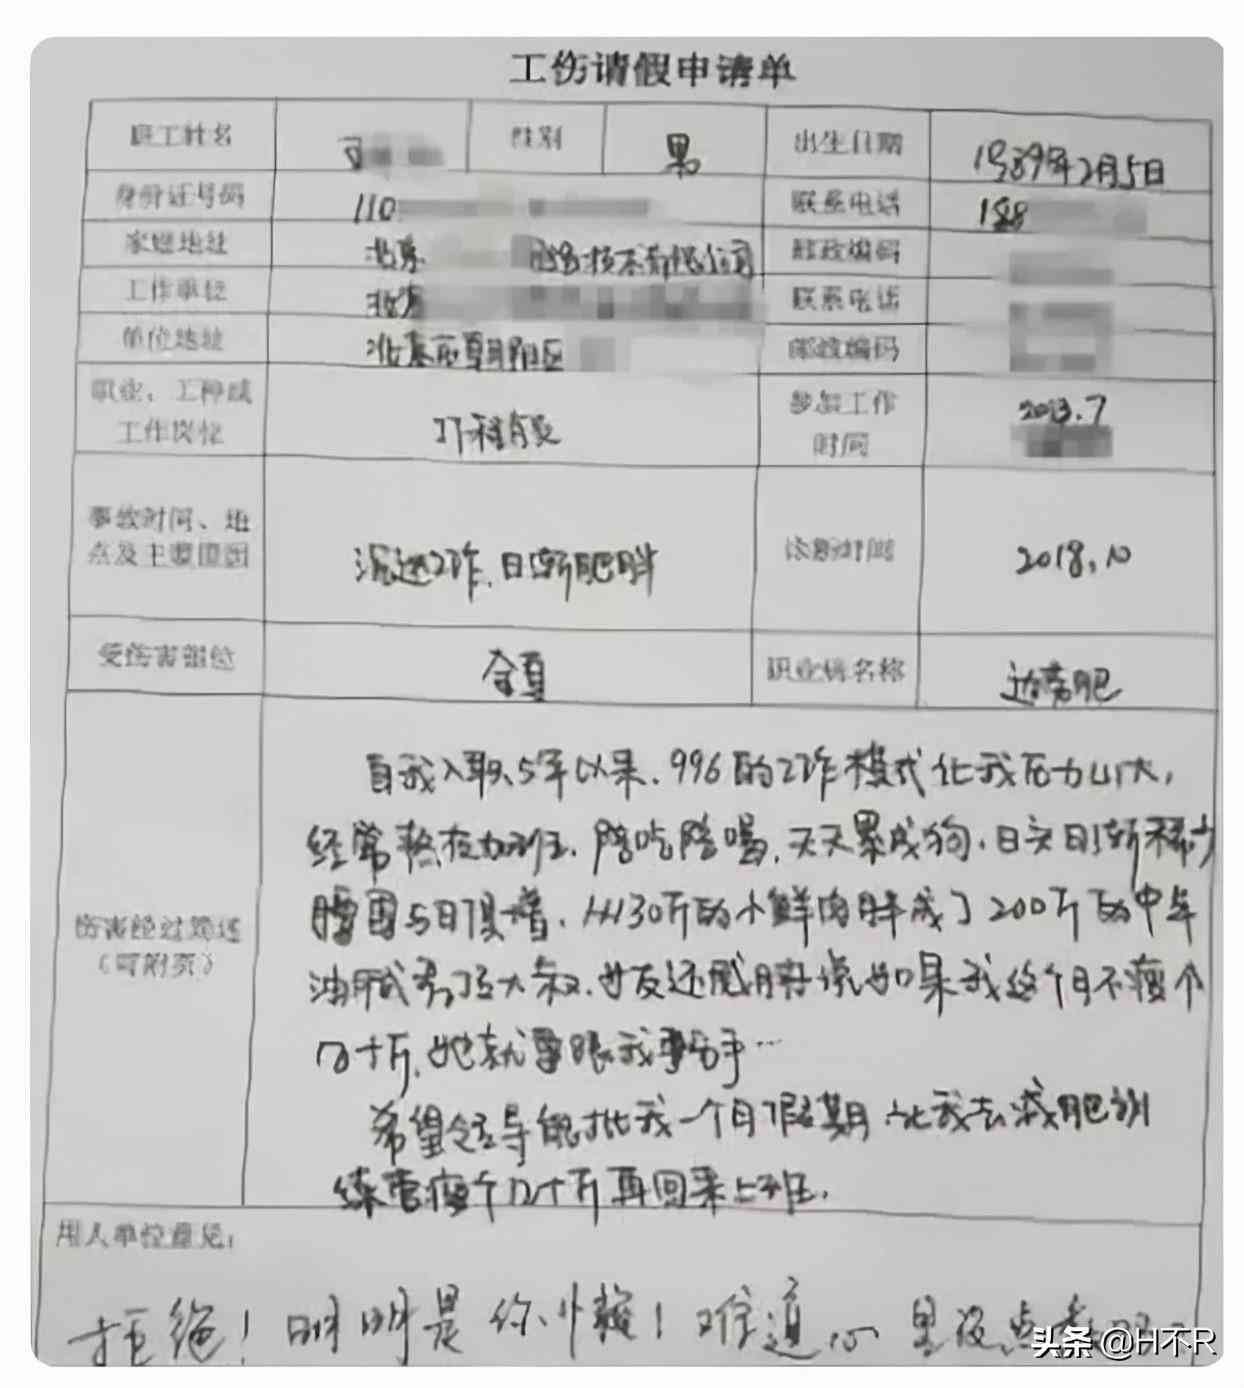 工伤请假申请单
职工姓名 性别 男 出生日期 1989年2月5日
身份证号码 110 联系电话 188
家庭地址 北京 网络技术有限公司 邮政编码
工作单位 北京 联系电话
单位地址 北京市朝阳区 邮政编码
职业、工种或 参加工作 2013.7
工作岗位 IT程序员 时间
事故时间、地
点及主要原因 沉迷工作、日渐肥胖 诊断时间 2018.10
受伤害部位 全身 职业病名称 过劳肥
自我入职5年以来、996的工作模式让我压力山大，
经常熬夜加班、陪吃陪喝，天天累成狗、日头日渐稀少
腰围与日俱增、从130斤的小鲜肉胖成了200斤的中年
油腻秃顶大叔、女友还威胁说如果我这个月不瘦个
几十斤，她就要跟我分手…
伤害经过简述
（可附页）
希望领导能批我一个月假期，让我去减肥训
练营瘦个几十斤再回来上班．
用人单位意见：
拒绝！明明是你懒！难道心里没点数
头条 @H不R